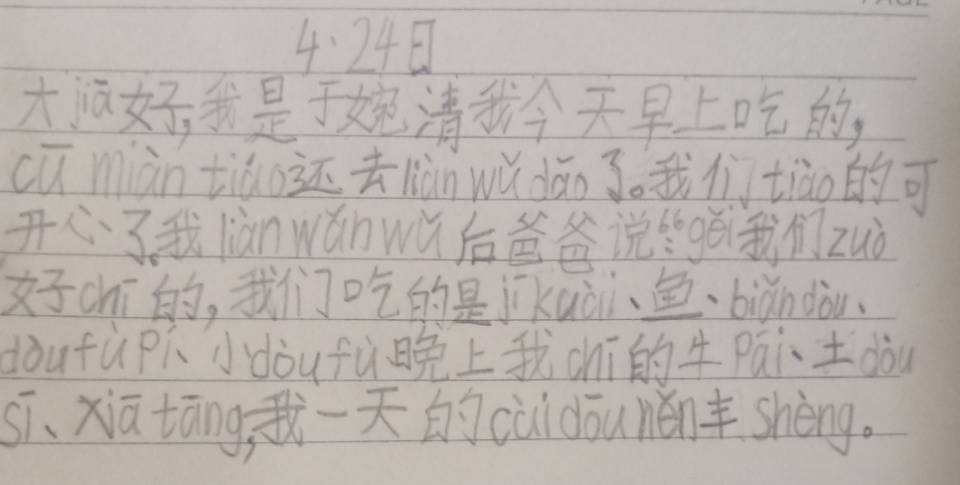 4.24日
大jiā好,我是于婉清我今天早上吃的,
cū miàn tiáo还去liàn wǔ dǎo了。我们tiào的可
开心了,我liàn wǎn wǔ后爸爸说:“gěi我们zuò
好chī的,我们吃的是jī kuài、鱼、biǎn dòu、
dòu fù Pí、小dòu fù晚上我chī的牛Pái、土dòu
sī、xiā tāng,我一天的cài dōu hěn丰shèng。